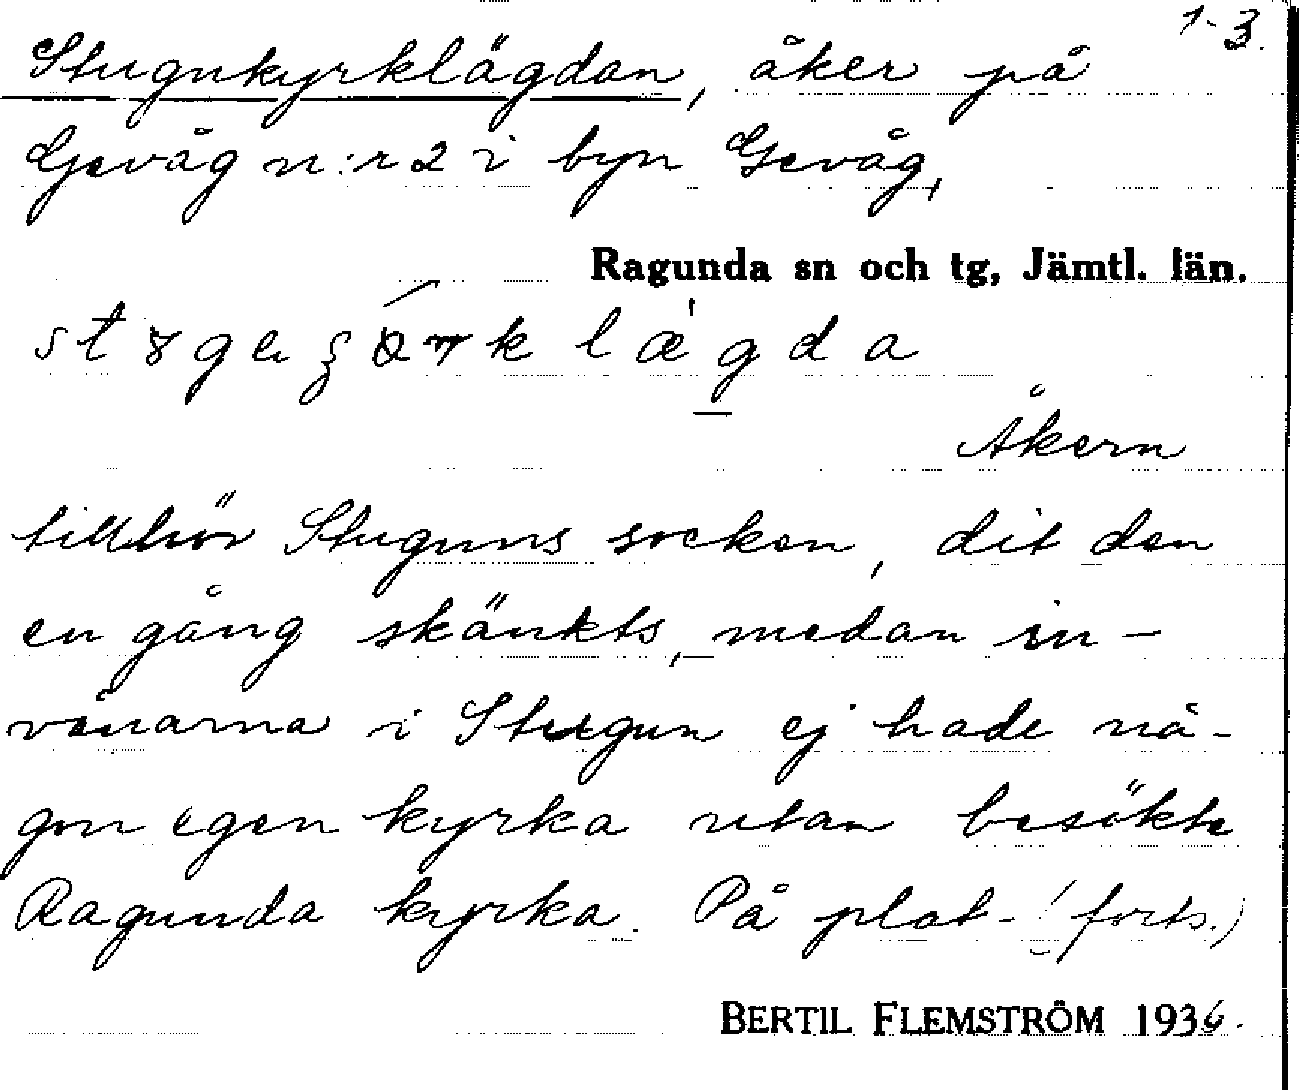 1-3.
Stugukyrklägdan, åker på
Gevåg n:r 2 i byn Gevåg,
Ragunda sn och tg, Jämtl. län.
Åkern
tillhör Stuguns socken, dit den
en gång skänkts, medan in-
vånarna i Stugun ej hade nå-
gon egen kyrka utan besökte
Ragunda kyrka. På plat- (forts.)
BERTIL FLEMSTRÖM 1936.